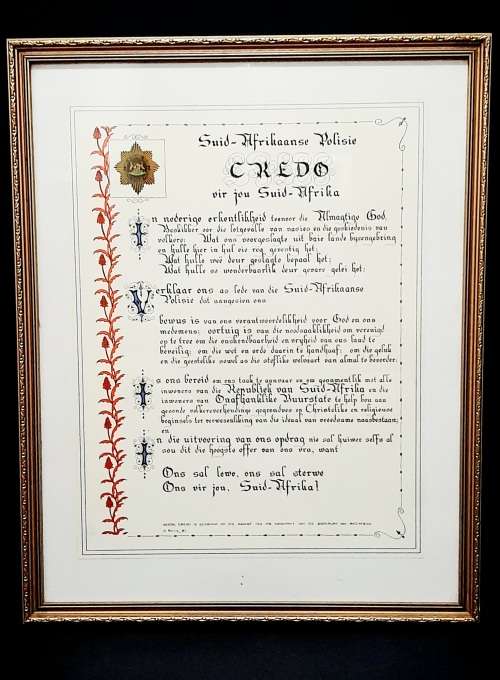 Suid-Afrikaanse Polisie
CREDO
vir jou Suid-Afrika
In nederige erkentlikheid teenoor die Almagtige God,
Beskikker oor die lotgevalle van nasies en die geskiedenis van
volkere: Wat ons voorgeslagte uit baie lande byeengebring
en hulle hier in hul eie reg gevestig het;
Wat hulle weë deur geslagte bepaal het;
Wat hulle so wonderbaarlik deur gevare gelei het;
Verklaar ons as lede van die Suid-Afrikaanse
Polisie dat aangesien ons
bewus is van ons verantwoordelikheid voor God en ons
medemens; oortuig is van die noodsaaklikheid om verenigd
op te tree om die onskendbaarheid en vryheid van ons land te
beveilig; om die wet en orde daarin te handhaaf; om die geluk
en die geestelike sowel as die stoflike welvaart van almal te bevorder;
Is ons bereid om ons taak te aanvaar en om gesamentlik met alle
inwoners van die Republiek van Suid-Afrika en die
inwoners van Onafhanklike Buurstate te help bou aan
gesonde volkereverhoudinge gegrondves op Christelike en religieuse
beginsels ter verwesenliking van die ideaal van vreedsame naasbestaan;
en
In die uitvoering van ons opdrag nie sal huiwer selfs al
sou dit die hoogste offer van ons vra, want
Ons sal lewe, ons sal sterwe
Ons vir jou, Suid-Afrika!